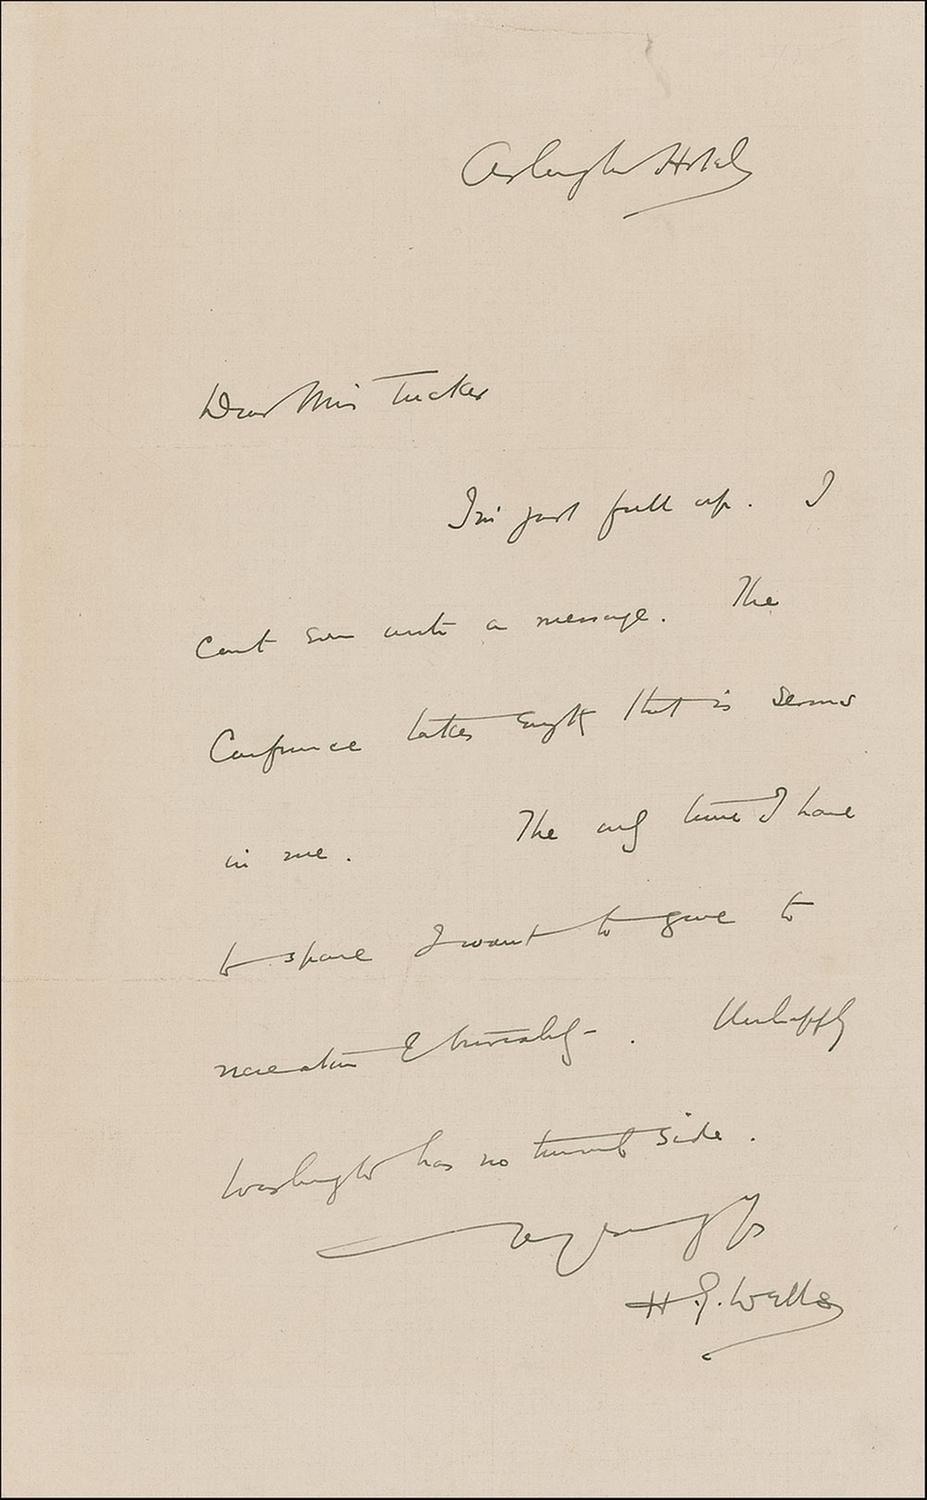 Arlington Hotel
Dear Miss Tucker
I'm just full up. I
can't even write a message. The
Conference takes that is serious
in me. The only time I have
to spare I want to give to
recreation & triviality. Unhappily
Washington has no side.
Very
H. G. Wells